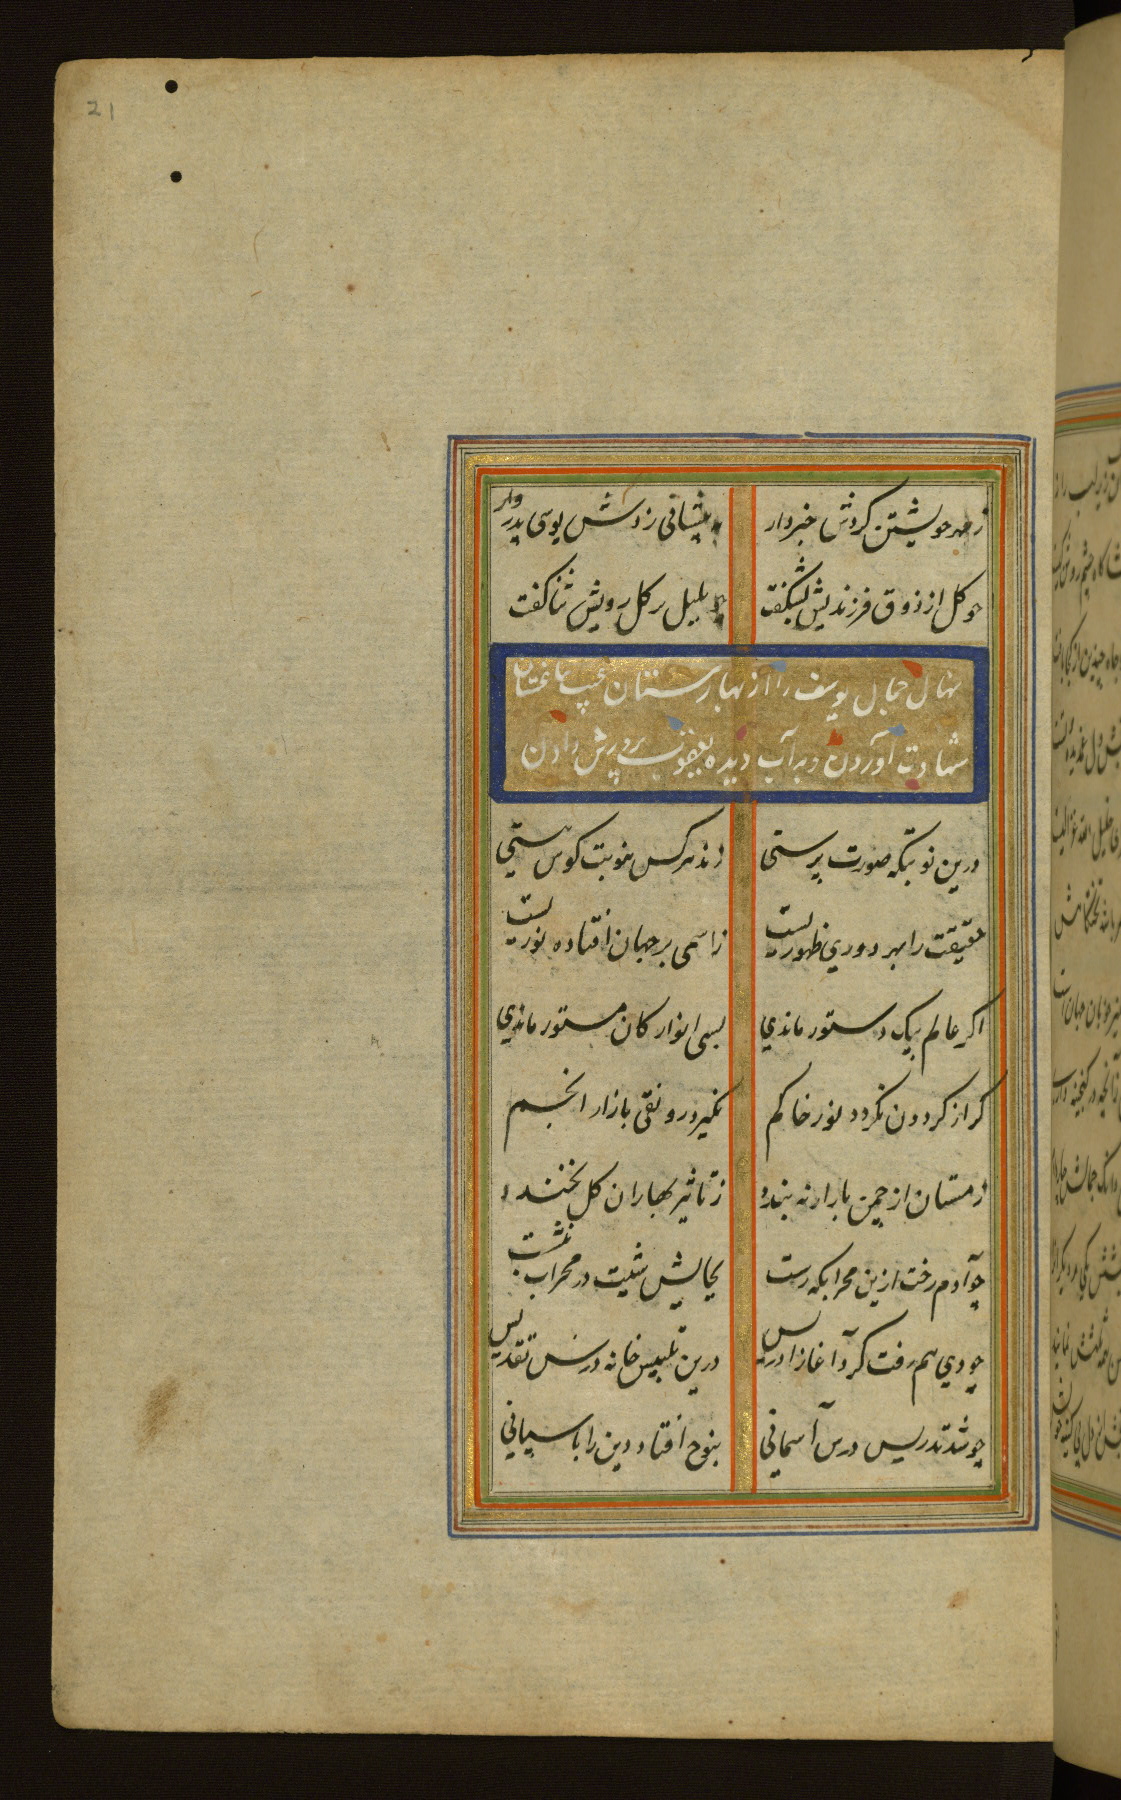 21
ز مهر خویشتن کردش خبردار
به پیشانی زدش بوسی پدروار
چو کل از ذوق فرزندیش بشکفت
چو بلبل بر کل رویش ثنا کفت
نهال جمال یوسف را از بهارستان غیب بباغستان
شهادت آوردن و به آب دیده یعقوب پرورش دادن
درین نوبتکه صورت پرستی
زند هر کس بنوبت کوس هستی
حقیقت را بهر دوری ظهوریست
ز اسمی بر جهان افتاده نوریست
اکر عالم بیک دستور ماندی
بسی انوار کان مستور ماندی
کر از کردون نکردد نور خور کم
نکیرد رونقی بازار انجم
زمستان از چمن بار ار نه بندد
ز تاثیر بهاران کل نخندد
چو آدم رخت ازین محرابکه بست
بجایش شیث در محراب بنشست
چو وی هم رفت کرد آغاز ادریس
درین تلبیس خانه درس تقدیس
چو شد تدریس درس آسمانی
بنوح افتاد دین را پاسبانی